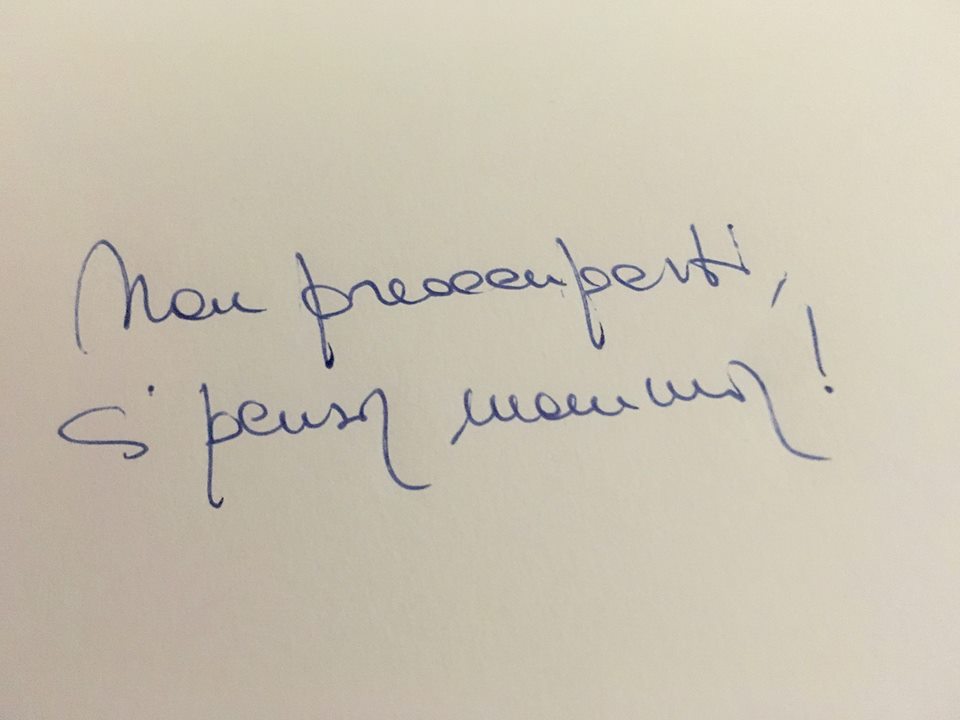 Non preoccuparti,
ci pensa mamma!